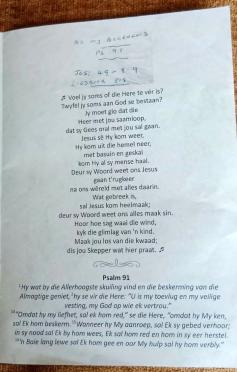 Ps 91
Jos: 49 - 8:9
♫ Voel jy soms of die Here te vêr is?
Twyfel jy soms aan God se bestaan?
Jy moet glo dat die
Heer met jou saamloop,
dat sy Gees oral met jou sal gaan.
Jesus sê Hy kom weer,
Hy kom uit die hemel neer,
met basuin en geskal
kom Hy al sy mense haal.
Deur sy Woord weet ons Jesus
gaan t'rugkeer
na ons wêreld met alles daarin.
Wat gebreek is,
sal Jesus kom heelmaak;
deur sy Woord weet ons alles maak sin.
Hoor hoe sag waai die wind,
kyk die glimlag van 'n kind.
Maak jou los van die kwaad;
dis jou Skepper wat hier praat. ♫
Psalm 91
¹Hy wat by die Allerhoogste skuiling vind en die beskerming van die
Almagtige geniet, ²hy se vir die Here: "U is my toevlug en my veilige
vesting, my God op wie ek vertrou."
¹⁴"Omdat hy my liefhet, sal ek hom red," se die Here, "omdat hy My ken,
sal Ek hom beskerm. ¹⁵Wanneer hy My aanroep, sal Ek sy gebed verhoor;
in sy nood sal Ek by hom wees, Ek sal hom red en hom in sy eer herstel.
¹⁶'n Baie lang lewe sal Ek hom gee en oor My hulp sal hy hom verbly."